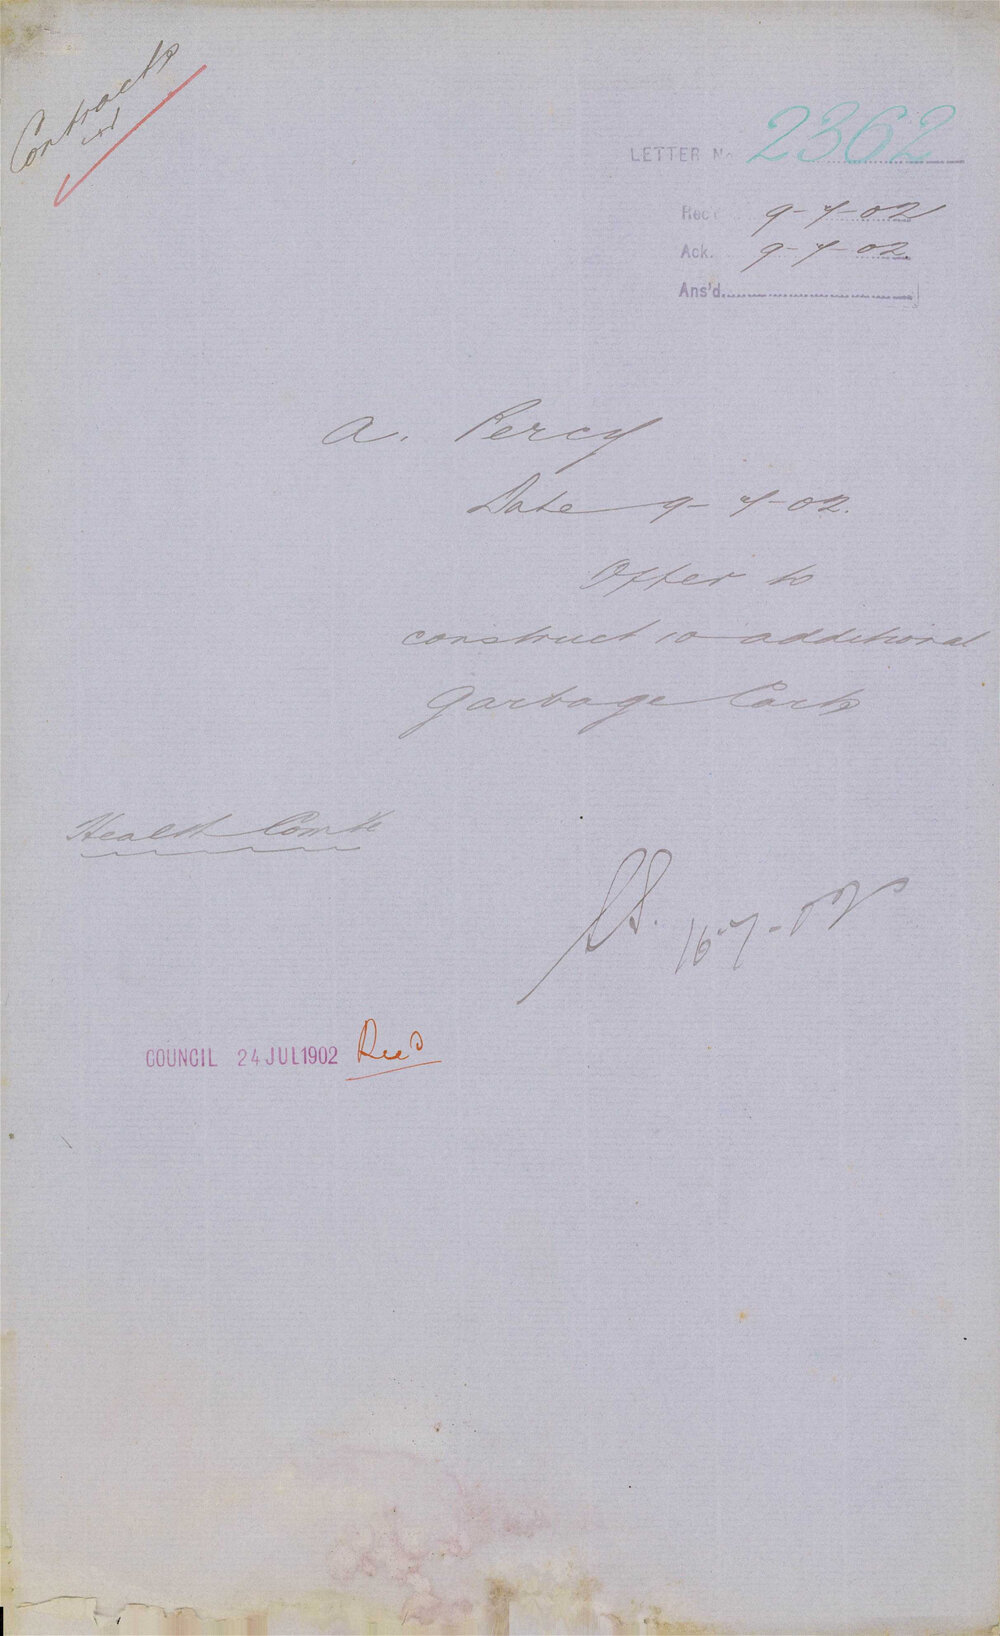 Contracts
LETTER No. 2362
Rec'd 9-7-02
Ack. 9-7-02.
Ans'd
A. Percy
Date 9-7-02.
Offer to
construct 10 additional
Garbage Carts
Health Comte
16-7-02
COUNCIL 24 JUL 1902 Rec'd